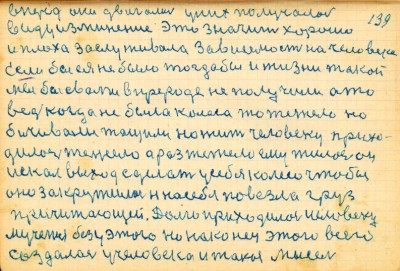 вперод они двигали у них получалос 139
видуизминение это значит хорошо
и плоха заслуживала зависемост на человека
если бы ея не было тогда бы и жизни такой
мы бы свами в природе не получили а то
вед когда не была колеса то тежело но
бичивали тащили ножит человеку прихо-
дилос тежело а раз тежело ему жилос он
искал выход сделат у себя колесо чтобы
оно закрутилос на себя повезла груз
причитающей. Долго приходилос человеку
мучется без этого но наконец этого всего
создалас у человека и такая мысел